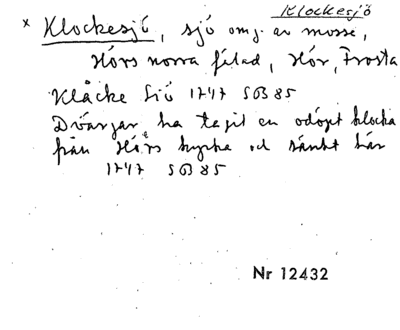 Klockesjö
x Klockesjö, sjö omg. av mosse,
Hörs norra fälad, Hör, Frosta
Klåcke Siö 1747 SOB 85
Dvärgar ha tagit en odöpt klocka
från Hörs kyrka och sänkt här
1747 SOB 85
Nr 12432